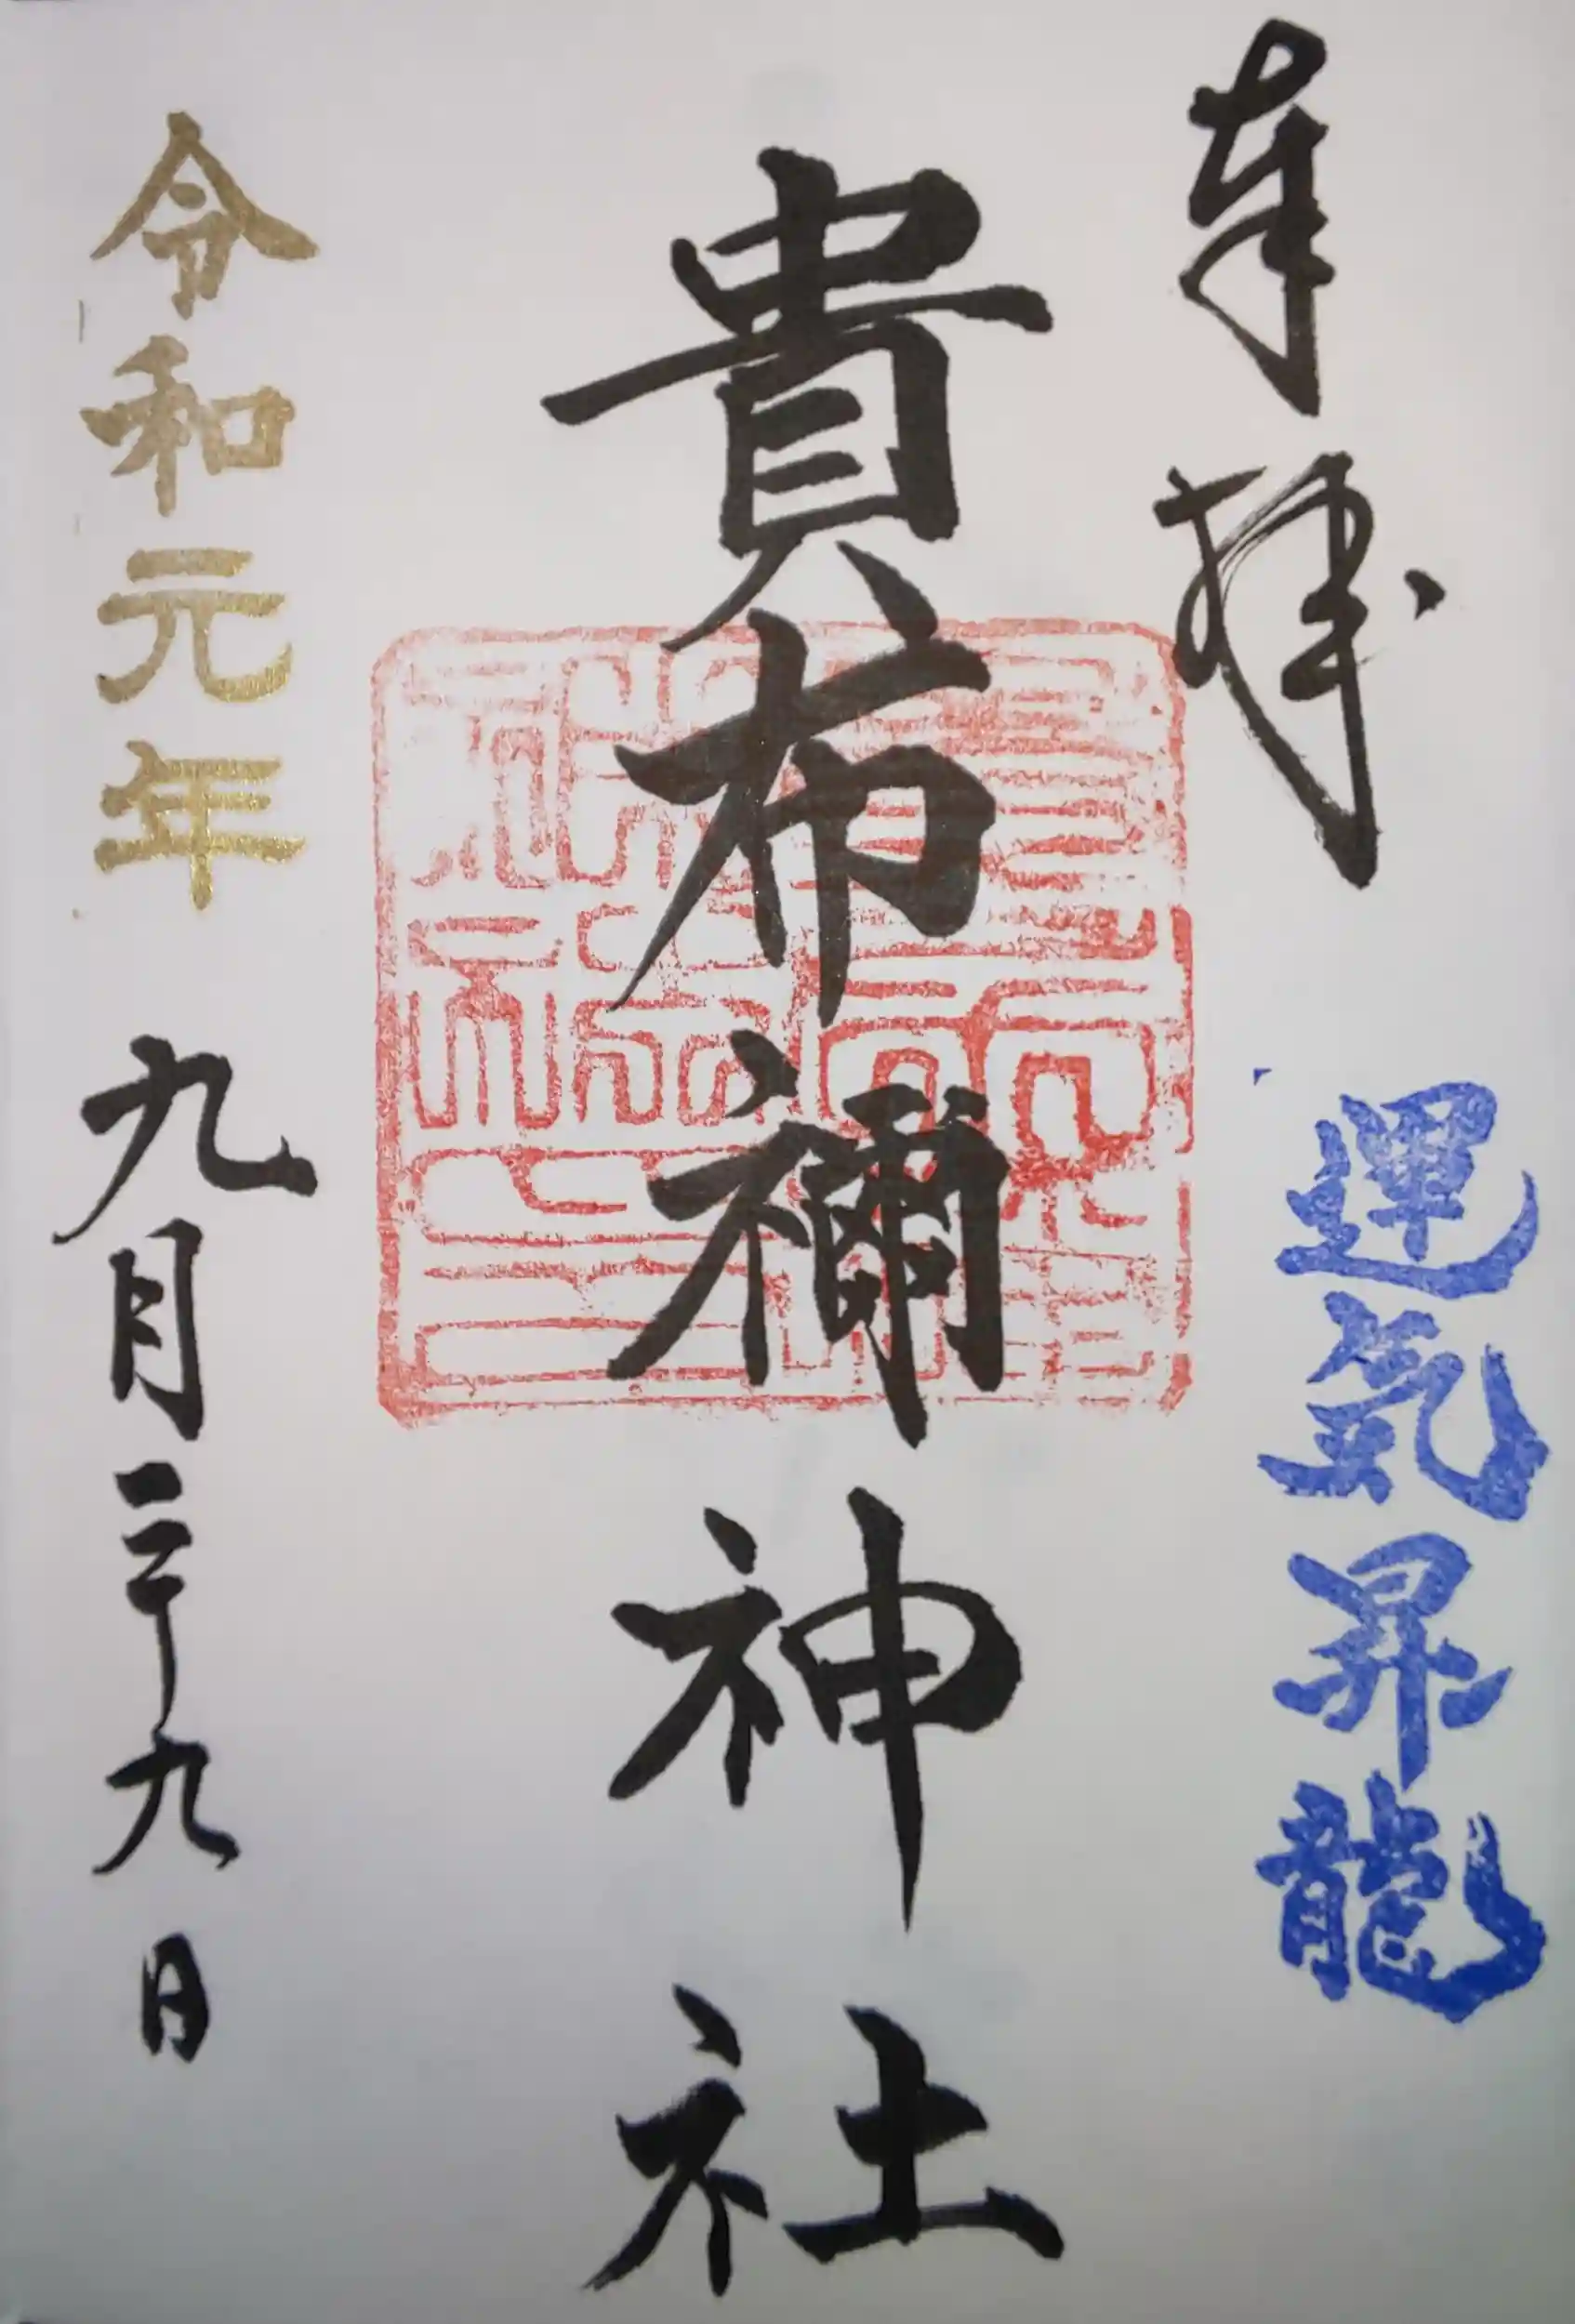 奉拝
運氣昇龍
貴布禰神社
令和元年
九月二十九日